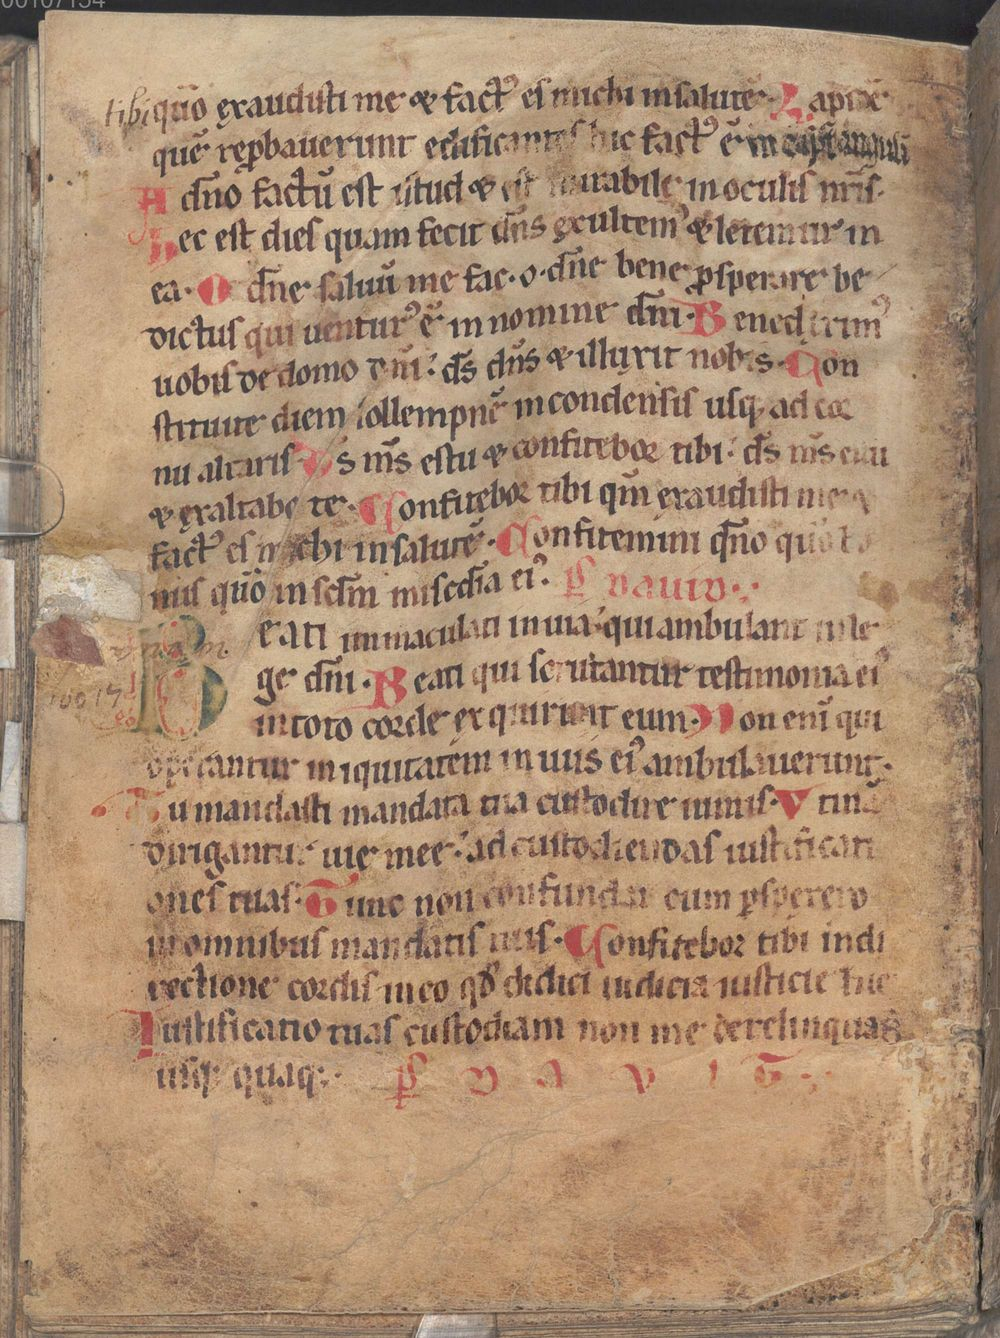 00107154
tibi qūo exaudisti me & fact᷒ es michi in salutē. Lapidē
quē rep̄bauerunt edificantes hic fact᷒ ē in capīt anguli
A dn̄o factū est istud & est mirabile in oculis nr̄is.
Hec est dies quam fecit dn̄s exultem᷒ & letemur in
ea. O dn̄e saluū me fac. o. dn̄e bene p̄sperare be
dictus qui uentur᷒ ē in nomine dn̄i. Benedixim᷒
uobis de domo dn̄i: ds̄ dn̄s & illuxit nobis. Con
stituite diem sollempnē in condensis usq; ad cor
nu altaris. Ds̄ ms̄ es tu & confitebor tibi: ds̄ ms̄ es tu
& exaltabo te. Confitebor tibi qm̄ exaudisti me &
fact᷒ es michi in salutē. Confitemini dn̄o quo
nis qūo in sclm̄ misc̄dia ei᷒. ps̄ Dauid.
Beati immaculati in uia: qui ambulant in le
ge dn̄i. Beati qui scrutantur testimonia ei᷒
10017
in toto corde exquirunt eum. Non enī qui
operantur iniquitatem in uiis ei᷒ ambulauerunt.
Tu mandasti mandata tua custodire nimis. Vtinā
dirigantur uie mee: ad custodiendas iustificati
ones tuas. Tunc non confundar cum p̄sperero
in omnibus mandatis tuis. Confitebor tibi in di
rectione cordis in eo qd̄ didici iudicia iusticie tue
Iustificatio tuas custodiam non me derelinquas
usq; quaq;. ps̄ D A V I T